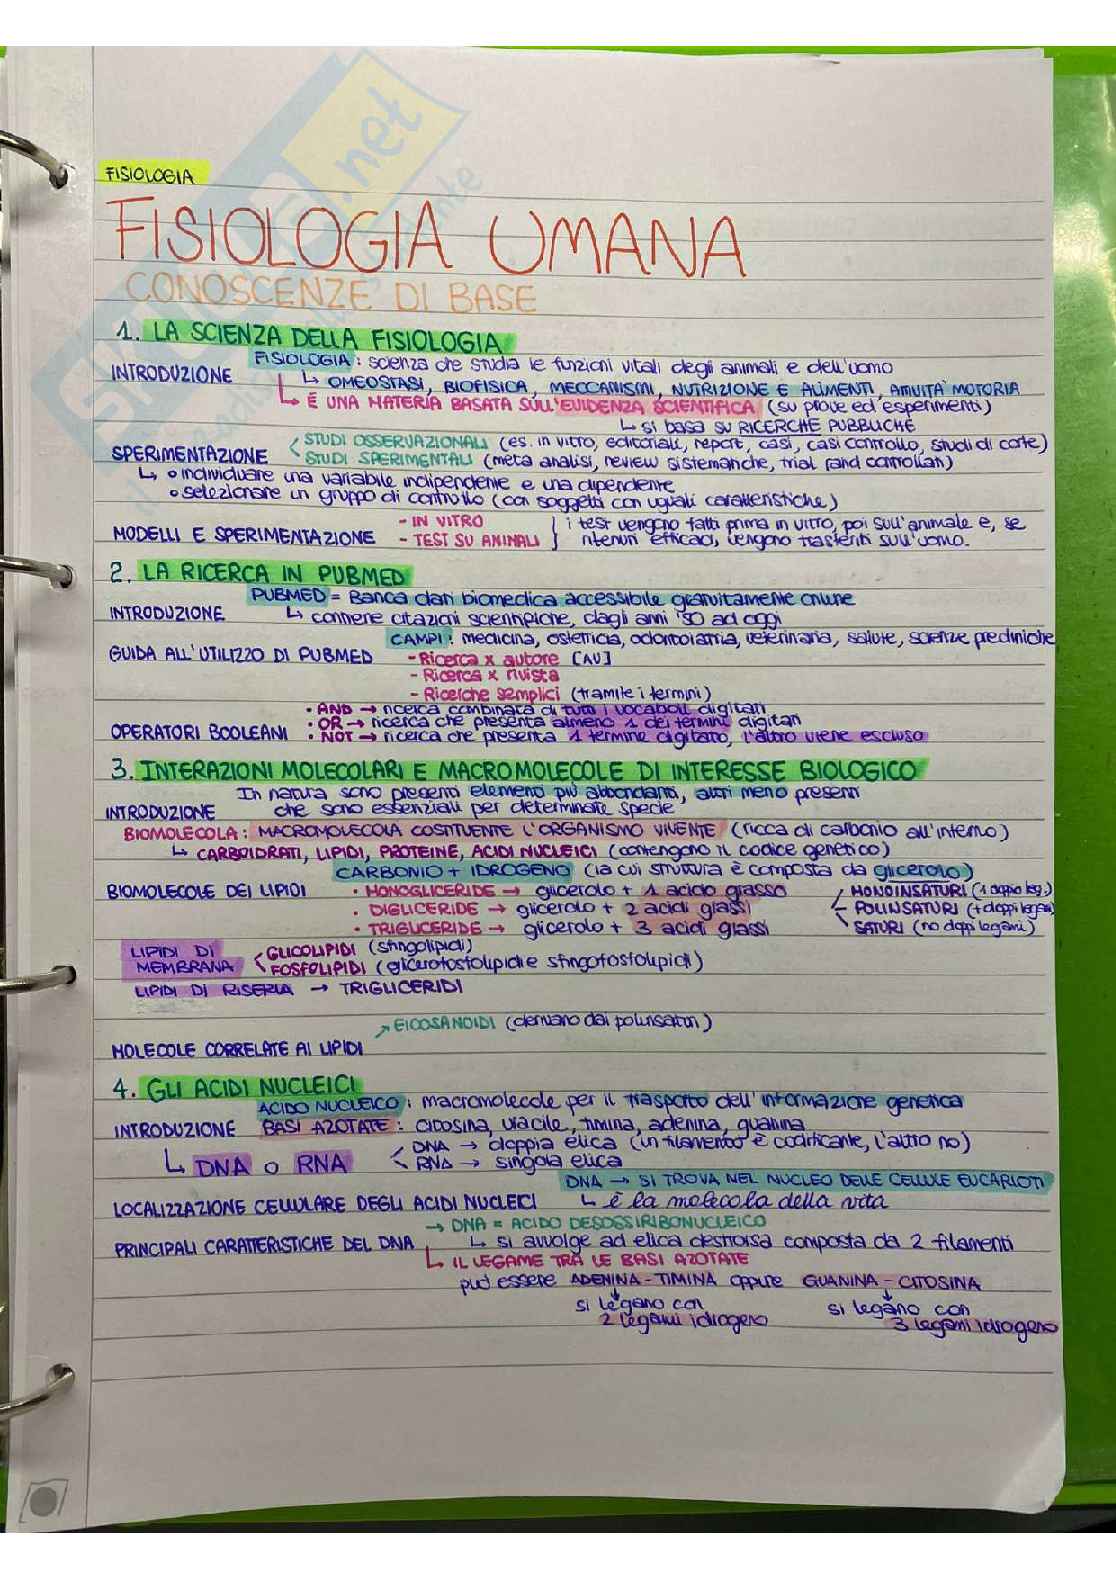 FISIOLOGIA
FISIOLOGIA UMANA
CONOSCENZE DI BASE
1. LA SCIENZA DELLA FISIOLOGIA
INTRODUZIONE FISIOLOGIA: scienza che studia le funzioni vitali degli animali e dell'uomo
↳ OMEOSTASI, BIOFISICA, MECCANISMI, NUTRIZIONE E ALIMENTI, ATTIVITÀ MOTORIA
↳ È UNA MATERIA BASATA SULL'EVIDENZA SCIENTIFICA (su prove ed esperimenti)
↳ si basa su RICERCHE PUBBLICHE
SPERIMENTAZIONE < STUDI OSSERVAZIONALI (es. in vitro, editoriale, report, casi, casi controllo, studi di corte)
STUDI SPERIMENTALI (meta analisi, review sistematiche, trial rand controllati)
↳ • individuare una variabile indipendente e una dipendente
• selezionare un gruppo di controllo (con soggetti con uguali caratteristiche)
MODELLI E SPERIMENTAZIONE - IN VITRO } i test vengono fatti prima in vitro, poi sull'animale e, se
- TEST SU ANIMALI } ritenuti efficaci, vengono trasferiti sull'uomo.
2. LA RICERCA IN PUBMED
INTRODUZIONE PUBMED = Banca dati biomedica accessibile gratuitamente online
↳ contiene citazioni scientifiche, dagli anni '50 ad oggi
CAMPI: medicina, ostetricia, odontoiatria, veterinaria, salute, scienze precliniche
GUIDA ALL'UTILIZZO DI PUBMED - Ricerca x autore [AU]
- Ricerca x rivista
- Ricerche semplici (tramite i termini)
OPERATORI BOOLEANI • AND → ricerca combinata di tutti i vocaboli digitati
• OR → ricerca che presenta almeno 1 dei termini digitati
• NOT → ricerca che presenta 1 termine digitato, l'altro viene escluso
3. INTERAZIONI MOLECOLARI E MACROMOLECOLE DI INTERESSE BIOLOGICO
INTRODUZIONE In natura sono presenti elementi più abbondanti, altri meno presenti
che sono essenziali per determinate specie
BIOMOLECOLA: MACROMOLECOLA COSTITUENTE L'ORGANISMO VIVENTE (ricca di carbonio all'interno)
↳ CARBOIDRATI, LIPIDI, PROTEINE, ACIDI NUCLEICI (contengono il codice genetico)
CARBONIO + IDROGENO (la cui struttura è composta da glicerolo)
BIOMOLECOLE DEI LIPIDI • MONOGLICERIDE → glicerolo + 1 acido grasso
• DIGLICERIDE → glicerolo + 2 acidi grassi
• TRIGLICERIDE → glicerolo + 3 acidi grassi
MONOINSATURI (1 doppio leg.)
POLINSATURI (+ doppi legami)
SATURI (no doppi legami)
LIPIDI DI MEMBRANA < GLICOLIPIDI (sfingolipidi)
FOSFOLIPIDI (glicerofosfolipidi e sfingofosfolipidi)
LIPIDI DI RISERVA → TRIGLICERIDI
MOLECOLE CORRELATE AI LIPIDI ↗ EICOSANOIDI (derivano dai polinsaturi)
4. GLI ACIDI NUCLEICI
INTRODUZIONE ACIDO NUCLEICO: macromolecole per il trasporto dell'informazione genetica
BASI AZOTATE: citosina, uracile, timina, adenina, guanina
↳ DNA o RNA < DNA → doppia elica (un filamento è codificante, l'altro no)
RNA → singola elica
LOCALIZZAZIONE CELLULARE DEGLI ACIDI NUCLEICI DNA → SI TROVA NEL NUCLEO DELLE CELLULE EUCARIOTI
↳ è la molecola della vita
PRINCIPALI CARATTERISTICHE DEL DNA → DNA = ACIDO DESOSSIRIBONUCLEICO
↳ si avvolge ad elica destrorsa composta da 2 filamenti
↳ IL LEGAME TRA LE BASI AZOTATE
può essere ADENINA - TIMINA oppure GUANINA - CITOSINA
↓ ↓
si legano con 2 legami idrogeno
si legano con 3 legami idrogeno